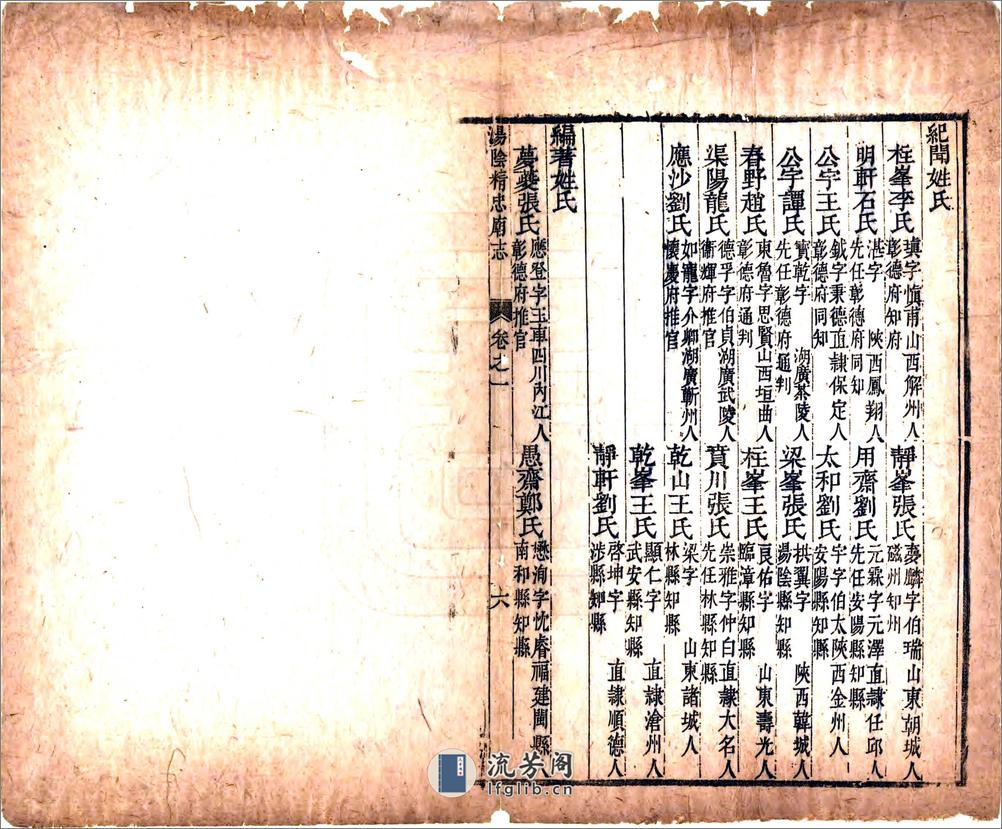 紀聞姓氏
桂峯李氏 瑱字慎甫山西解州人 彰德府知府 靜峯張氏 夢麟字伯瑞山東朝城人 磁州知州
明軒石氏 湛字 陝西鳳翔人 先任彰德府同知 用齋劉氏 元霖字元澤直隸任邱人 先任安陽縣知縣
公宇王氏 鉞字秉德直隸保定人 彰德府同知 太和劉氏 宇字伯太陝西金州人 安陽縣知縣
公宇譚氏 寶乾字 湖廣茶陵人 先任彰德府通判 梁峯張氏 拱翼字 陝西韓城人 湯陰縣知縣
春野趙氏 東魯字思賢山西垣曲人 彰德府通判 桂峯王氏 良佑字 山東壽光人 臨漳縣知縣
渠陽龍氏 德孚字伯貞湖廣武陵人 衞輝府推官 賁川張氏 崇雅字仲白直隸大名人 先任林縣知縣
應沙劉氏 如寵字介卿湖廣蘄州人 懷慶府推官 乾山王氏 梁字 山東諸城人 林縣知縣
乾峯王氏 顯仁字 直隸滄州人 武安縣知縣
靜軒劉氏 啓坤字 直隸順德人 涉縣知縣
編著姓氏
夢夔張氏 應登字玉車四川內江人 彰德府推官 愚齋鄭氏 懋洵字忱睿福建閩縣 南和縣知縣
湯陰精忠廟志 卷之一 六
流芳阁
lfglib.cn